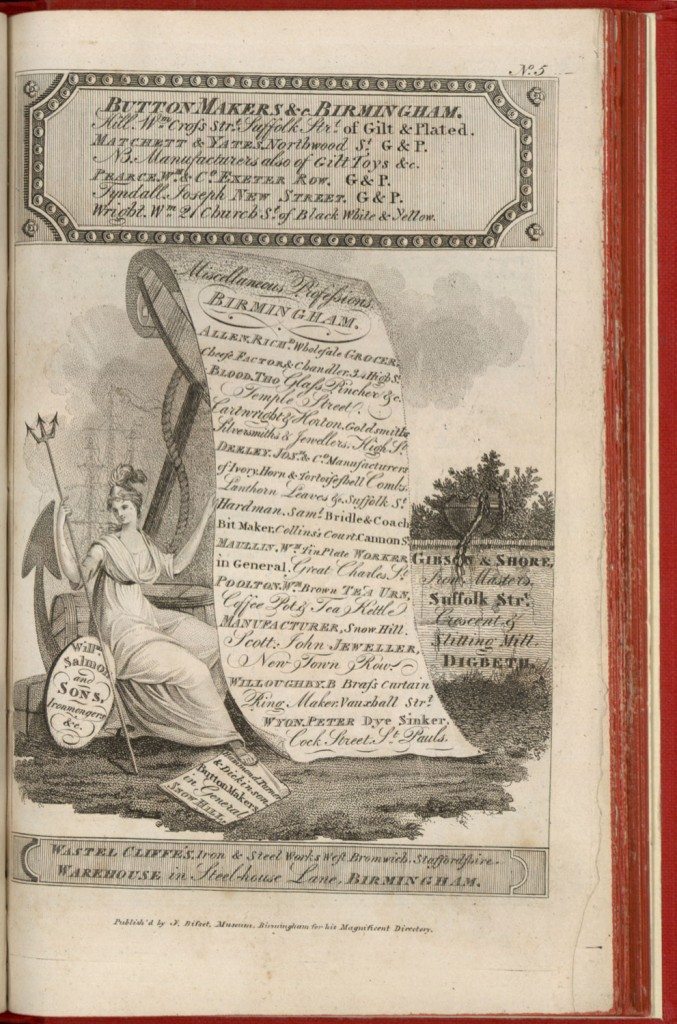 No. 5
BUTTON MAKERS &c BIRMINGHAM.
Hill. Wm. Cross Str. Suffolk Str. of Gilt & Plated.
MATCHETT & YATES, Northwood St. G & P.
NB. Manufacturers also of Gilt Toys &c.
PEARCE, Wm. & Co. EXETER ROW. G & P.
Tyndall. Joseph NEW STREET. G & P.
Wright. Wm. 21 Church St. of Black White & Yellow.
Miscellaneous Professions
BIRMINGHAM.
ALLEN, RICHd. Wholesale GROCER,
Cheese FACTOR & Chandler. 34 High St.
BLOOD, THO. Glass Pincher &c.
Temple Street.
Cartwright & Horton, Goldsmiths
Silversmiths & Jewellers, High St.
DEELEY. JOSh. & Co. Manufacturers
of Ivory, Horn & Tortoiseshell Combs.
Lanthorn Leaves &c. Suffolk St.
Hardman. Saml. Bridle & Coach
Bit Maker, Collins's Court, Cannon S.
MAULLIN, Wm. Tin Plate WORKER
in General. Great Charles St.
POOLTON, Wm. Brown TEA URN,
Coffee Pot & Tea Kettle
MANUFACTURER, Snow Hill.
Scott. John JEWELLER,
New Town Row
WILLOUGHBY, B. Brass Curtain
Ring Maker. Vauxhall Str.
WYON, PETER Dye Sinker,
Cock Street, St. Pauls.
GIBSON & SHORE,
Iron Masters,
Suffolk Str.
Crescent &
Slitting Mill.
DIGBETH.
Willm.
Salmon
and
SONS,
Ironmongers
&c.
& Dickinson
Button Makers
in General
SNOW HILL
WASTEL CLIFFE'S, Iron & Steel Works West Bromwich, Staffordshire.
WAREHOUSE in Steel-house Lane, BIRMINGHAM.
Publish'd by J. Bisset, Museum, Birmingham for his Magnificent Directory.